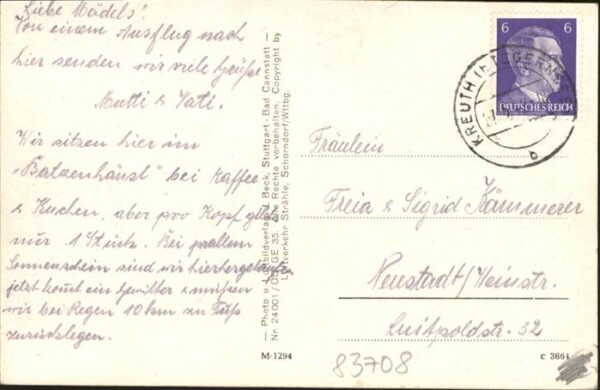 Liebe Mädels!
Von einem Ausflug nach
hier senden wir viele Grüße
Mutti & Vati.
Wir sitzen hier im
"Batzenhäusl" bei Kaffee
& Kuchen, aber pro Kopf gibts
nur 1 Stück. Bei prallem
Sonnenschein sind wir hierhergelaufen
jetzt kommt ein Gewitter & müssen
wir bei Regen 10 km zu Fuß
zurücklegen.
— Photo u. Luftbildverlag A. Beck, Stuttgart - Bad Cannstatt —
Nr 24001/ GE 35. Alle Rechte vorbehalten. Copyright by
Luftverkehr Strähle, Schorndorf/Wttbg.
6 6
DEUTSCHES REICH
KREUTH TEGERNSEE
b
Fräulein
Freia & Sigrid Kämmerer
Neustadt/Weinstr.
Luitpoldstr. 52
M/1294
c 3661
83708